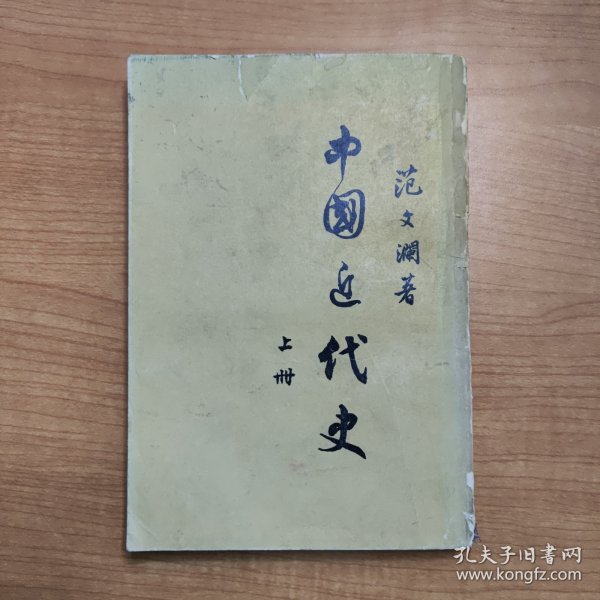 范文瀾著
中國近代史
上册
孔夫子旧書网
www.kongfz.com